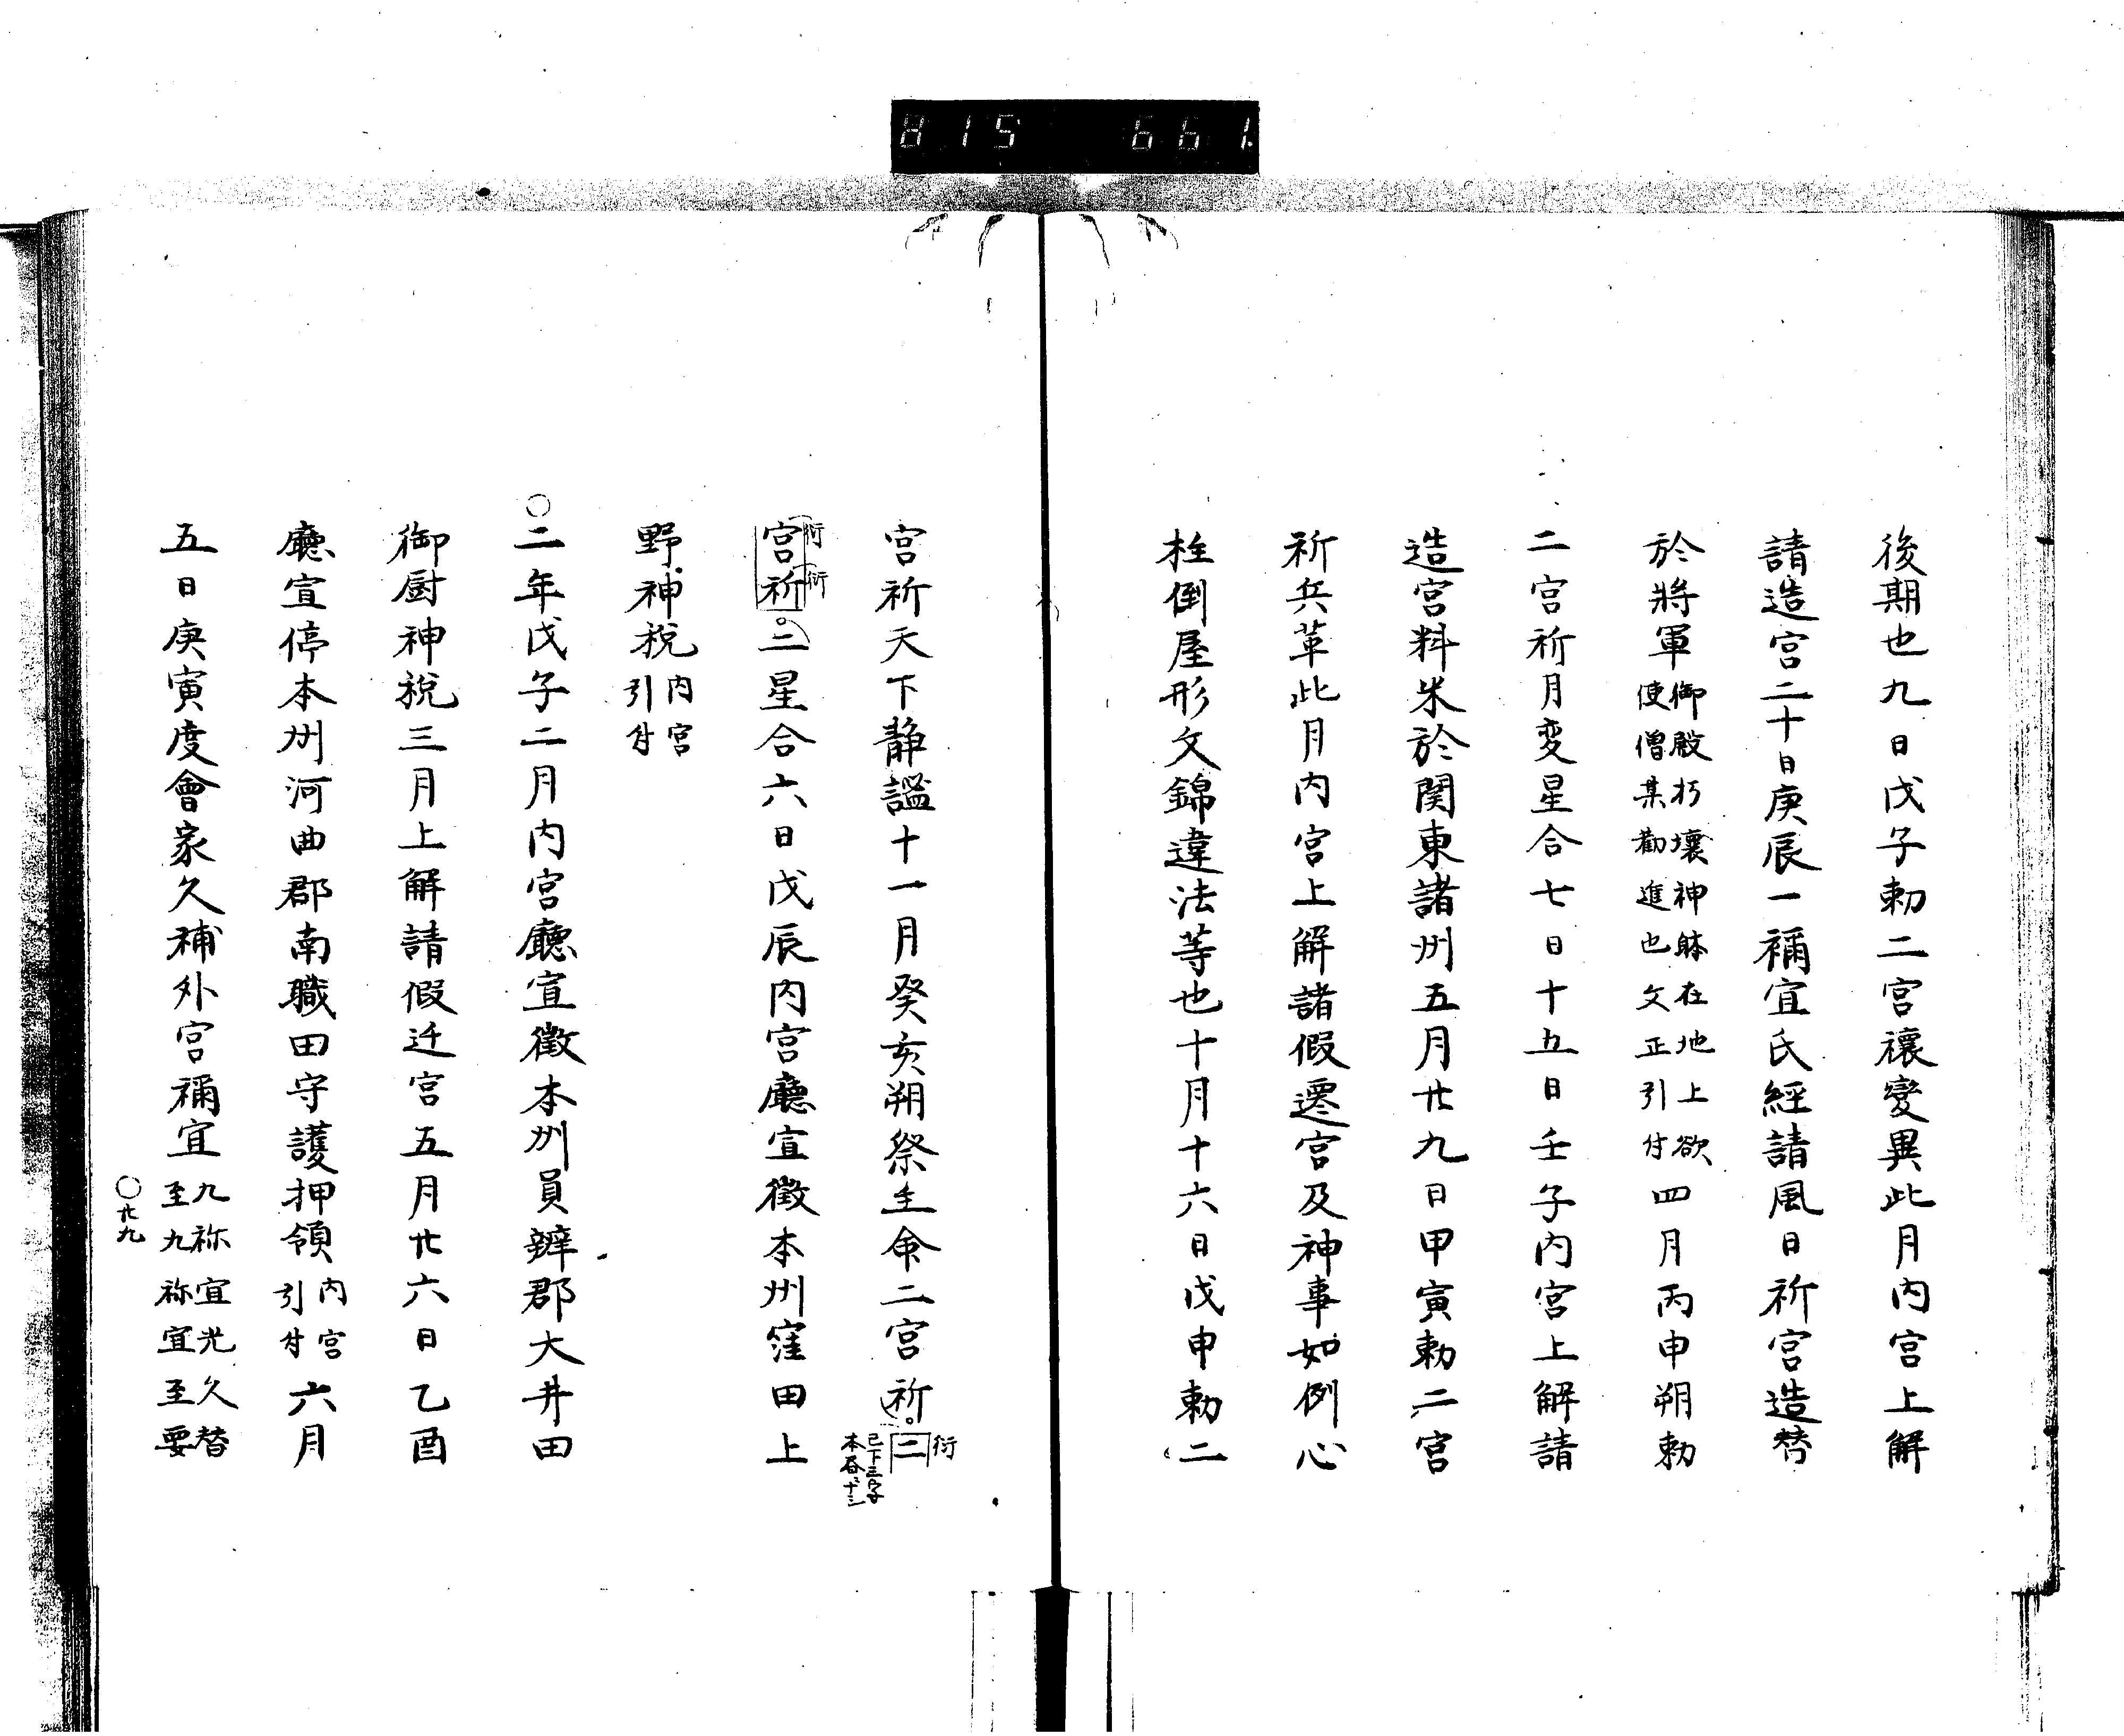 815 661
後期也九日戊子勅二宮禳変異此月内宮上解
請造宮二十日庚辰一禰宜氏經請風日祈宮造替
於將軍御殿朽壞神躰在地上欲
使僧某勸進也文正引付四月丙申朔勅
二宮祈月变星合七日十五日壬子内宮上解請
造宮料米於関東諸州五月廿九日甲寅勅二宮
祈兵革此月内宮上解諸假遷宮及神事如例心
柱倒屋形文錦違法等也十月十六日戊申勅二
宮祈天下静謐十一月癸亥朔祭主命二宮祈二
衍
已下三字
本呑
宮祈二星合六日戊辰内宮廳宣徵本州窪田上
衍
衍
野神税内宮
引付
○二年戊子二月内宮廳宣徵本州員辨郡大井田
御厨神税三月上解請假迁宮五月廿六日乙酉
廳宣停本州河曲郡南職田守護押領内宮
引付六月
五日庚寅度會家久補外宮禰宜九祢宜光久替
至九祢宜至要
○廿九